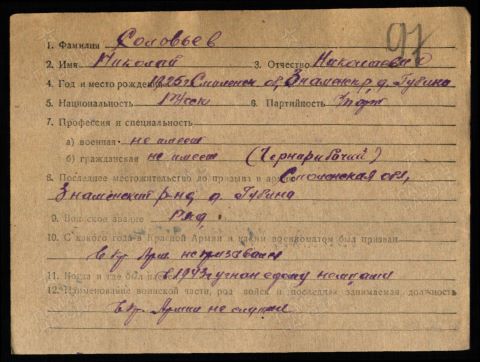 97
1. Фамилия Соловьев
2. Имя Николай 3. Отчество Николаевич
4. Год и место рождения 1925 г Смоленск об, Знаменск р, д. Губино
5. Национальность 6. Партийность
7. Профессия и специальность
а) военная не имеет
б) гражданская не имеет (Чернорабочий)
8. Последнее местожительство до призыва в армию Смоленская обл,
Знаменский р-нд д. Губино
9. Воинское звание Ряд.
10. С какого года в Красной Армии и каким военкоматом был призван
В Кр. Арм. не призывался
11. Когда и где был в 1943 г угнан с дому немцами
12. Наименование воинской части, род войск и последняя занимаемая должность
В Кр. Армии не служил